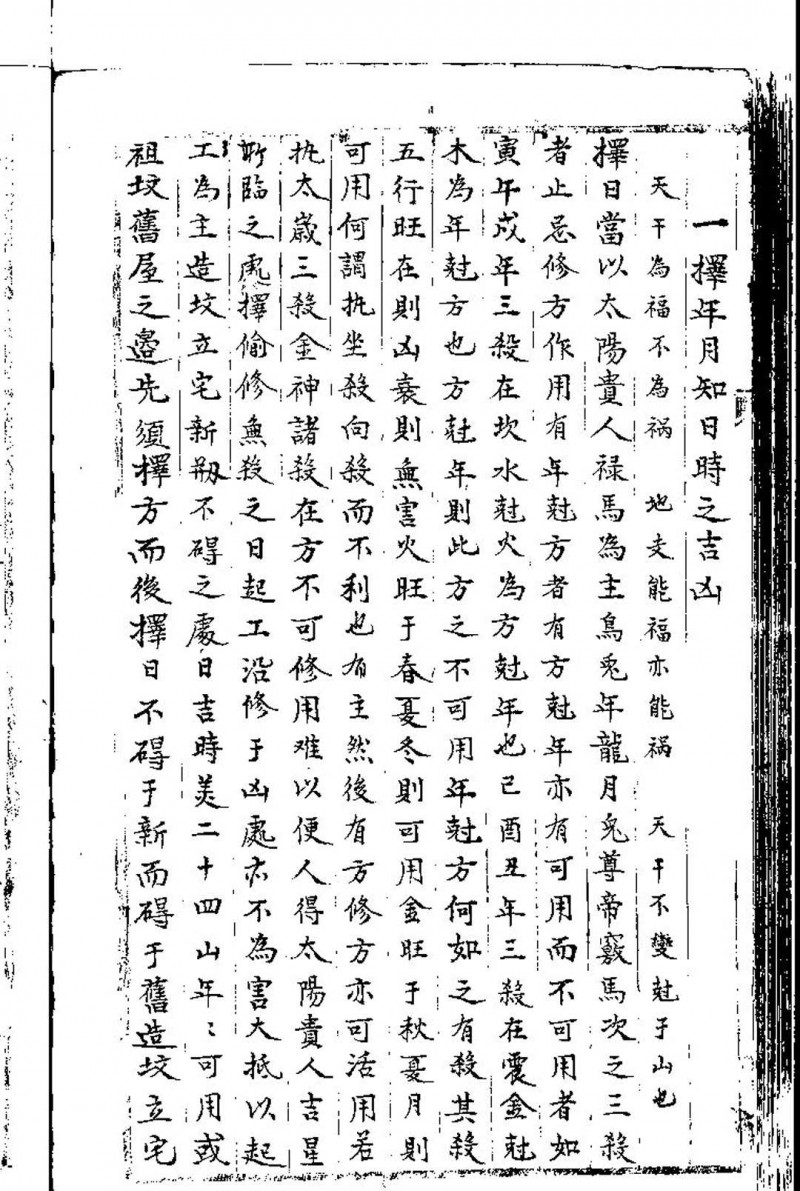 一擇年月知日時之吉凶
天干為福不為禍 地支能福亦能禍 天干不變尅于山也
擇日當以太陽貴人禄馬為主鳥兎年龍月皃尊帝竅馬次之三殺
者止忌修方作用有年尅方者有方尅年亦有可用而不可用者如
寅午戌年三殺在坎水尅火為方尅年也已酉丑年三殺在震金尅
木為年尅方也方尅年則此方之不可用年尅方何如之有殺其殺
五行旺在則凶衰則無害火旺于春夏冬則可用金旺于秋夏月則
可用何謂執坐殺向殺而不利也有主然後有方修方亦可活用若
执太歲三殺金神諸殺在方不可修用难以便人得太陽貴人吉星
所臨之處擇偷修無殺之日起工沿修于凶處亦不為害大抵以起
工為主造坟立宅新剏不碍之處日吉時美二十四山年〻可用或
祖坟舊屋之邊先須擇方而後擇日不碍于新而碍于舊造坟立宅